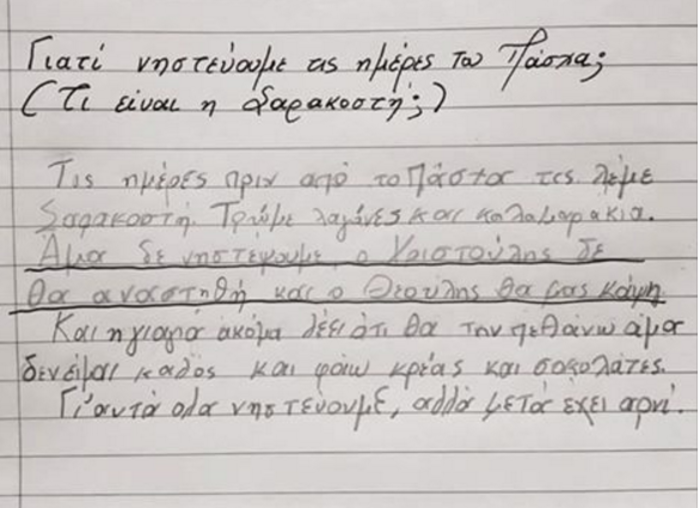 Γιατί νηστεύουμε τις ημέρες του Πάσχα;
(Τι είναι η Σαρακοστή;)
Τις ημέρες πριν από το Πάστα τες λέμε
Σαρακοστή. Τρώμε λαγάνες και καλαμαράκια.
Άμα δε νηστέψουμε, ο Χριστούλης δε
θα αναστηθή και ο Θεούλης θα μας κάψη
Και η γιαγιά ακόμα λέει ότι θα την πεθάνω άμα
δεν είμαι καλός και φάω κρέας και σοκολάτες.
Γι'αυτά όλα νηστεύουμε, αλλά μετά έχει αρνί.